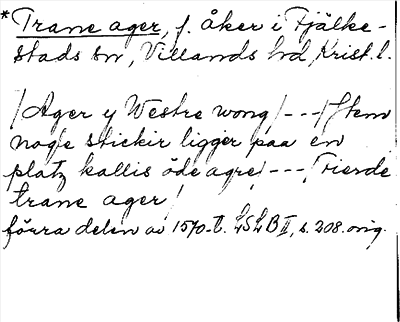 *Trane ager, f. åker i Fjälke-
stads sn, Villands hd, Krist. l.
/Ager y Westre wong/---/Item
nogle stickir ligger paa en
platz kallis öde agre/---/Fierde
trane ager/
förra delen av 1570-t. LSLB II, s. 208. orig.